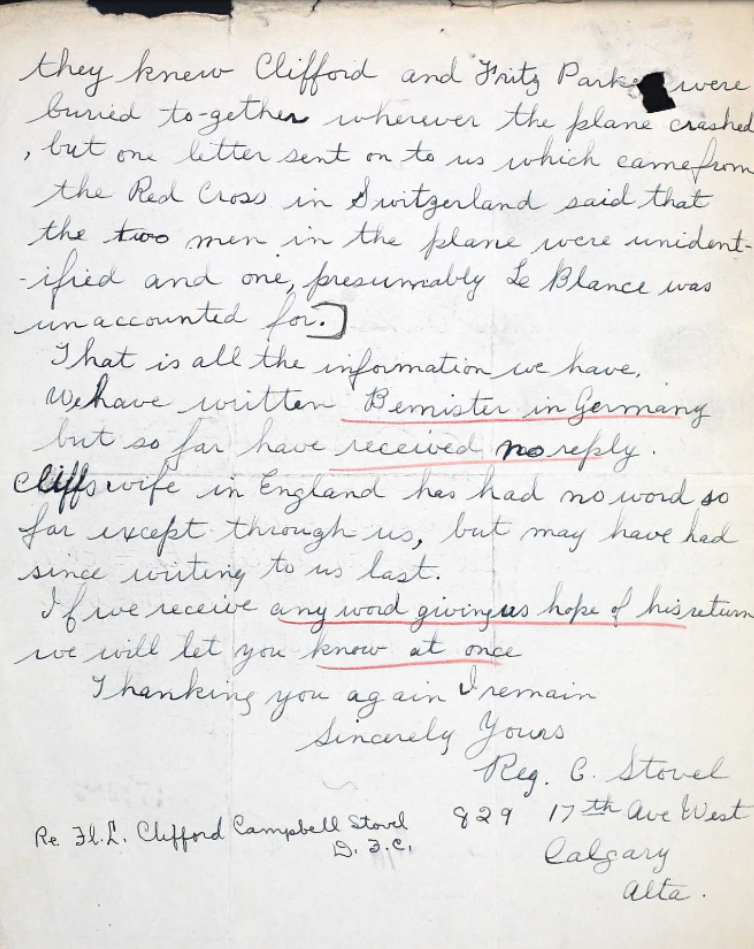 they knew Clifford and Fritz Parker were
buried to-gether wherever the plane crashed
, but one letter sent on to us which came from
the Red Cross in Switzerland said that
the two men in the plane were unident-
-ified and one, presumably Le Blance was
unaccounted for.]
That is all the information we have.
We have written Bemister in Germany
but so far have received no reply.
Cliffs wife in England has had no word so
far except through us, but may have had
since writing to us last.
If we receive any word giving us hope of his return
we will let you know at once
Thanking you again I remain
Sincerely Yours
Reg. C. Stovel
829 17th Ave West
Calgary
Alta.
Re Fl. L. Clifford Campbell Stovel
D. F. C.